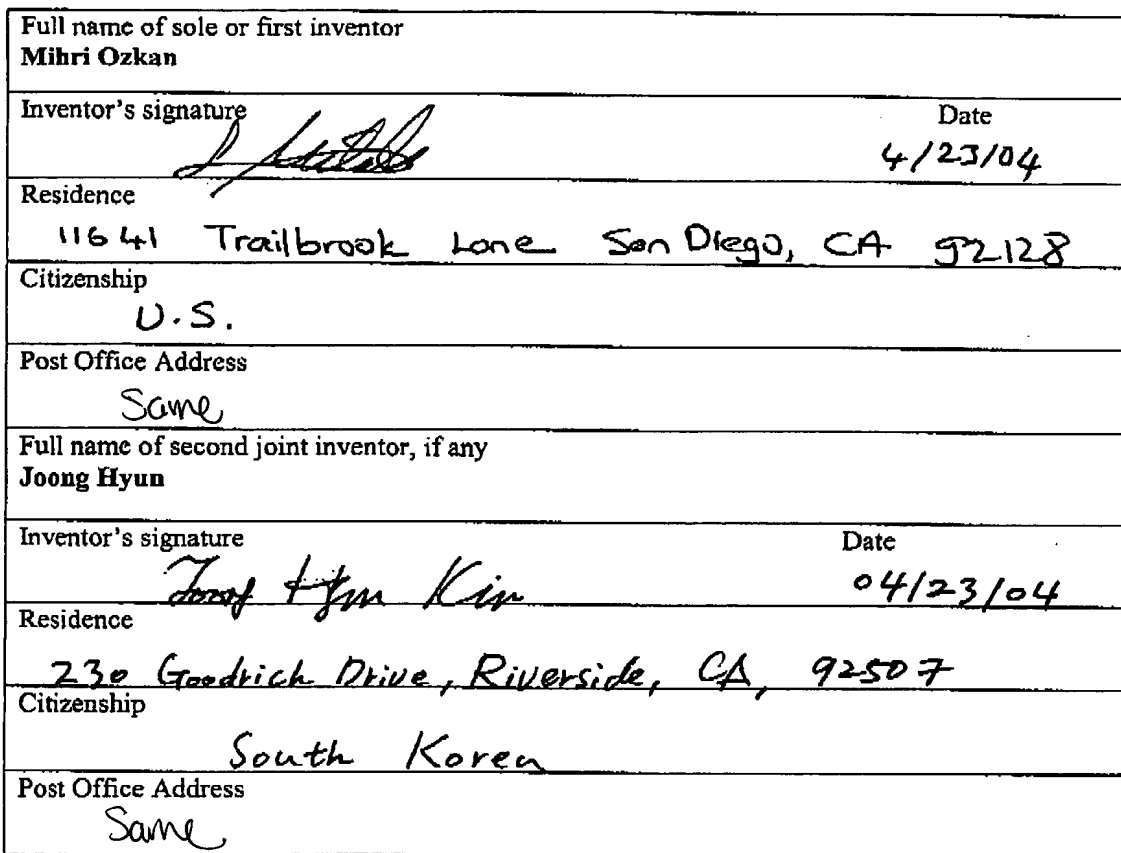 Full name of sole or first inventor
Mihri Ozkan
Inventor's signature Date
4/23/04
Residence
11641 Trailbrook Lane San Diego, CA 92128
Citizenship
U.S.
Post Office Address
Same
Full name of second joint inventor, if any
Joong Hyun
Inventor's signature Date
Joong Hyun Kim 04/23/04
Residence
230 Goodrich Drive, Riverside, CA, 92507
Citizenship
South Korea
Post Office Address
Same